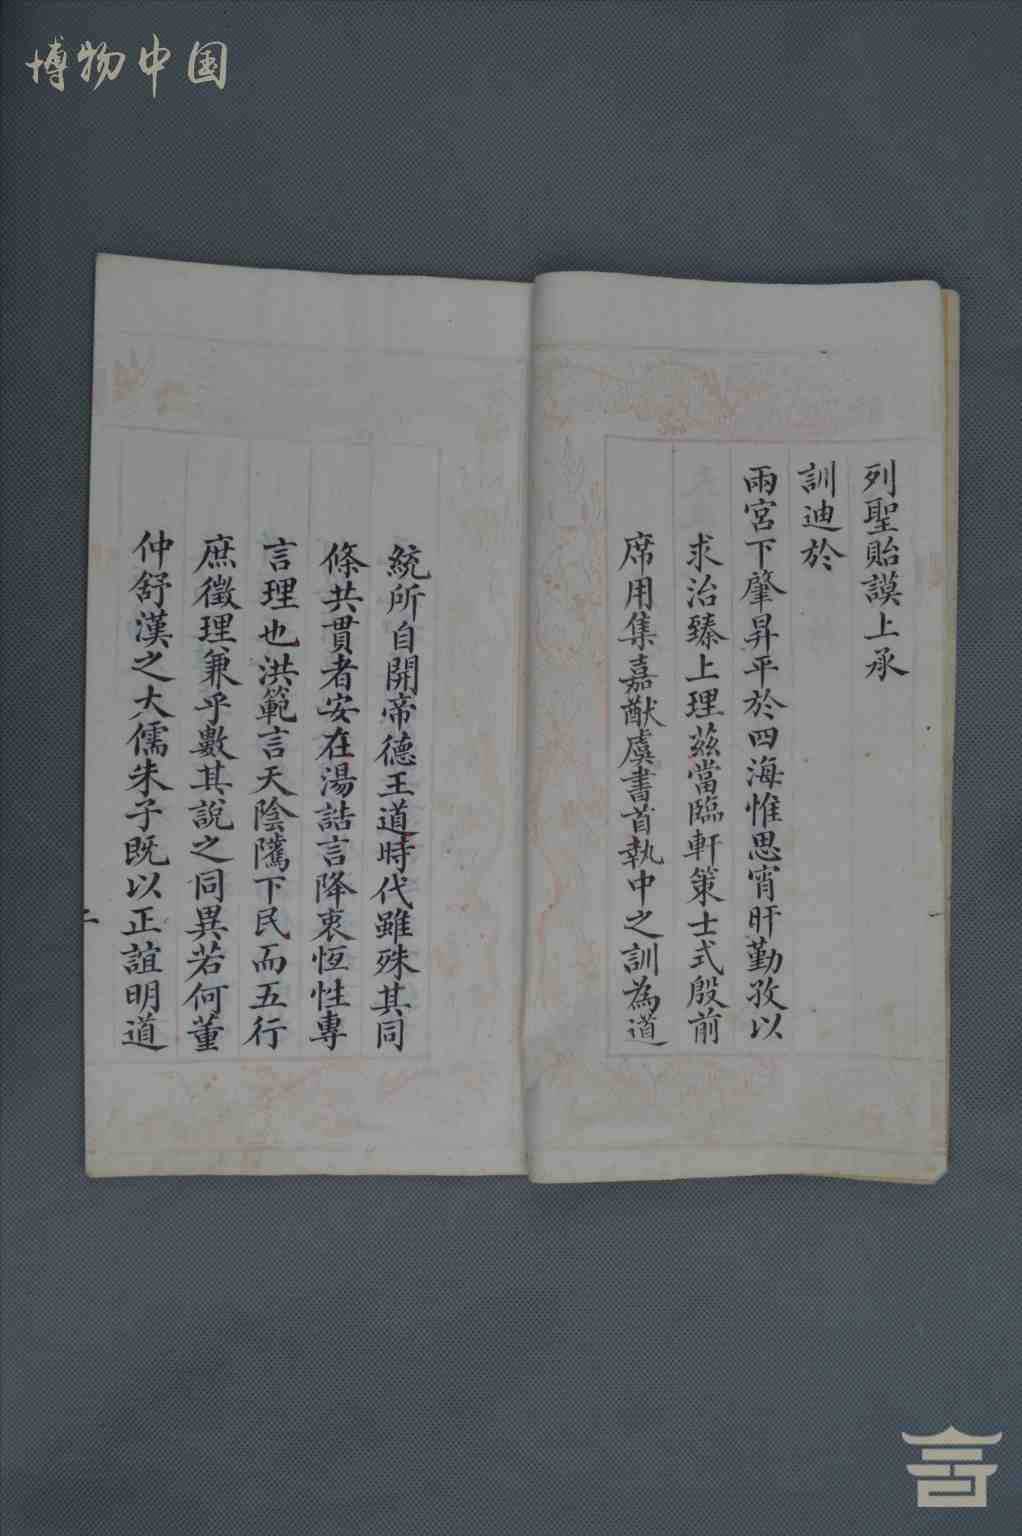 博物中国
列聖貽謨上承
訓迪於
兩宮下肇昇平於四海惟思宵旰勤孜以
求治臻上理茲當臨軒策士式殷前
席用集嘉猷虞書首執中之訓為道
統所自開帝德王道時代雖殊其同
條共貫者安在湯誥言降衷恆性專
言理也洪範言天陰隲下民而五行
庶徵理兼乎數其說之同異若何董
仲舒漢之大儒朱子既以正誼明道